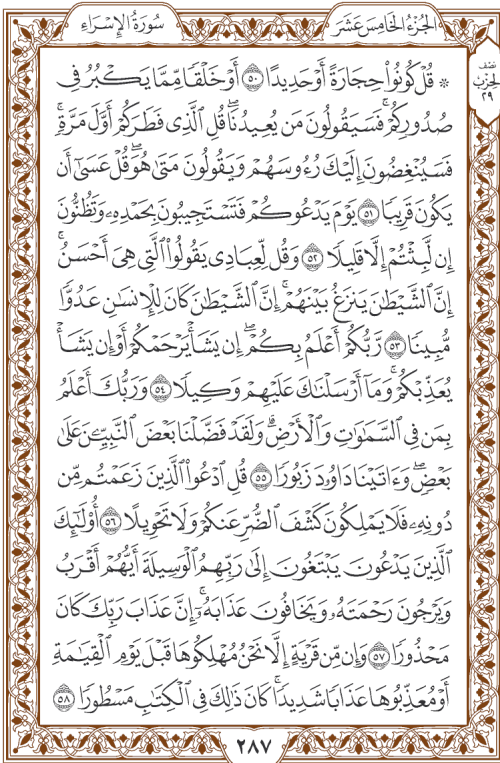 الجُزْءُ الخَامِسَ عَشَرَ
سُورَةُ الإِسْرَاءِ
نصف
الحزب
٢٩
۞ قُلْ كُونُوا۟ حِجَارَةً أَوْ حَدِيدًا ٥٠ أَوْ خَلْقًا مِّمَّا يَكْبُرُ فِى
صُدُورِكُمْ ۚ فَسَيَقُولُونَ مَن يُعِيدُنَا ۖ قُلِ ٱلَّذِى فَطَرَكُمْ أَوَّلَ مَرَّةٍ ۚ
فَسَيُنْغِضُونَ إِلَيْكَ رُءُوسَهُمْ وَيَقُولُونَ مَتَىٰ هُوَ ۖ قُلْ عَسَىٰٓ أَن
يَكُونَ قَرِيبًا ٥١ يَوْمَ يَدْعُوكُمْ فَتَسْتَجِيبُونَ بِحَمْدِهِۦ وَتَظُنُّونَ
إِن لَّبِثْتُمْ إِلَّا قَلِيلًا ٥٢ وَقُل لِّعِبَادِى يَقُولُوا۟ ٱلَّتِى هِىَ أَحْسَنُ ۚ
إِنَّ ٱلشَّيْطَٰنَ يَنزَغُ بَيْنَهُمْ ۚ إِنَّ ٱلشَّيْطَٰنَ كَانَ لِلْإِنسَٰنِ عَدُوًّا
مُّبِينًا ٥٣ رَّبُّكُمْ أَعْلَمُ بِكُمْ ۖ إِن يَشَأْ يَرْحَمْكُمْ أَوْ إِن يَشَأْ
يُعَذِّبْكُمْ ۚ وَمَآ أَرْسَلْنَٰكَ عَلَيْهِمْ وَكِيلًا ٥٤ وَرَبُّكَ أَعْلَمُ
بِمَن فِى ٱلسَّمَٰوَٰتِ وَٱلْأَرْضِ ۗ وَلَقَدْ فَضَّلْنَا بَعْضَ ٱلنَّبِيِّـۧنَ عَلَىٰ
بَعْضٍ ۖ وَءَاتَيْنَا دَاوُۥدَ زَبُورًا ٥٥ قُلِ ٱدْعُوا۟ ٱلَّذِينَ زَعَمْتُم مِّن
دُونِهِۦ فَلَا يَمْلِكُونَ كَشْفَ ٱلضُّرِّ عَنكُمْ وَلَا تَحْوِيلًا ٥٦ أُو۟لَٰٓئِكَ
ٱلَّذِينَ يَدْعُونَ يَبْتَغُونَ إِلَىٰ رَبِّهِمُ ٱلْوَسِيلَةَ أَيُّهُمْ أَقْرَبُ
وَيَرْجُونَ رَحْمَتَهُۥ وَيَخَافُونَ عَذَابَهُۥٓ ۚ إِنَّ عَذَابَ رَبِّكَ كَانَ
مَحْذُورًا ٥٧ وَإِن مِّن قَرْيَةٍ إِلَّا نَحْنُ مُهْلِكُوهَا قَبْلَ يَوْمِ ٱلْقِيَٰمَةِ
أَوْ مُعَذِّبُوهَا عَذَابًا شَدِيدًا ۚ كَانَ ذَٰلِكَ فِى ٱلْكِتَٰبِ مَسْطُورًا ٥٨
٢٨٧